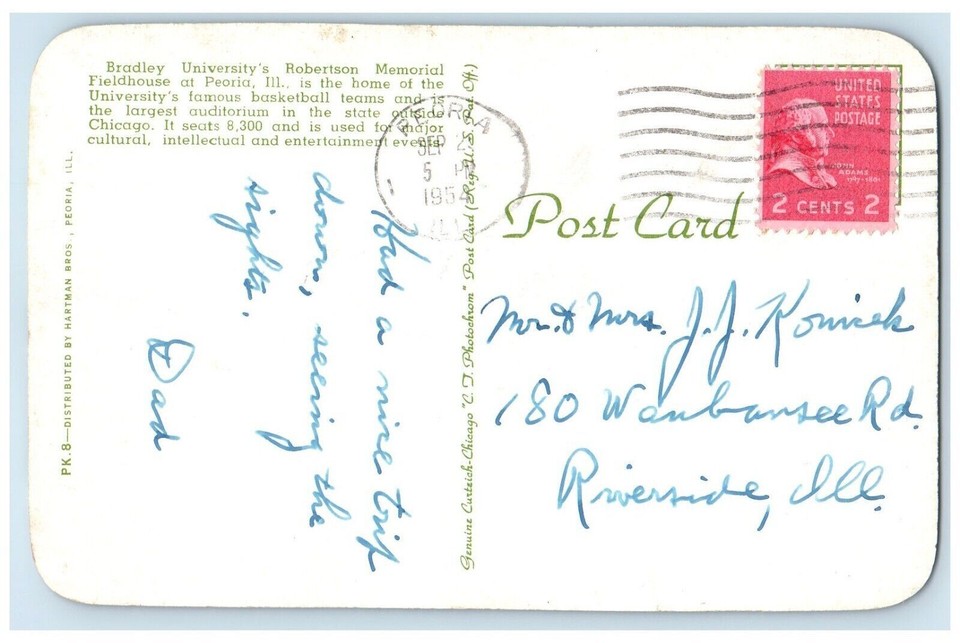 Bradley University's Robertson Memorial
Fieldhouse at Peoria, Ill., is the home of the
University's famous basketball teams and is
the largest auditorium in the state outside
Chicago. It seats 8,300 and is used for major
cultural, intellectual and entertainment events.
PK.8—DISTRIBUTED BY HARTMAN BROS., PEORIA, ILL.
Had a nice trip
down, seeing the
sights.
Dad
Genuine Curteich-Chicago "C. T. Photochrom" Post Card (Reg. U. S. Pat. Off.)
PEORIA
SEP 2
5 PM
195
ILL
UNITED
STATES
POSTAGE
JOHN
ADAMS
1797-1801
2 CENTS 2
Post Card
Mr. & Mrs. J. J. Konicek
180 Waubansee Rd.
Riverside, Ill.